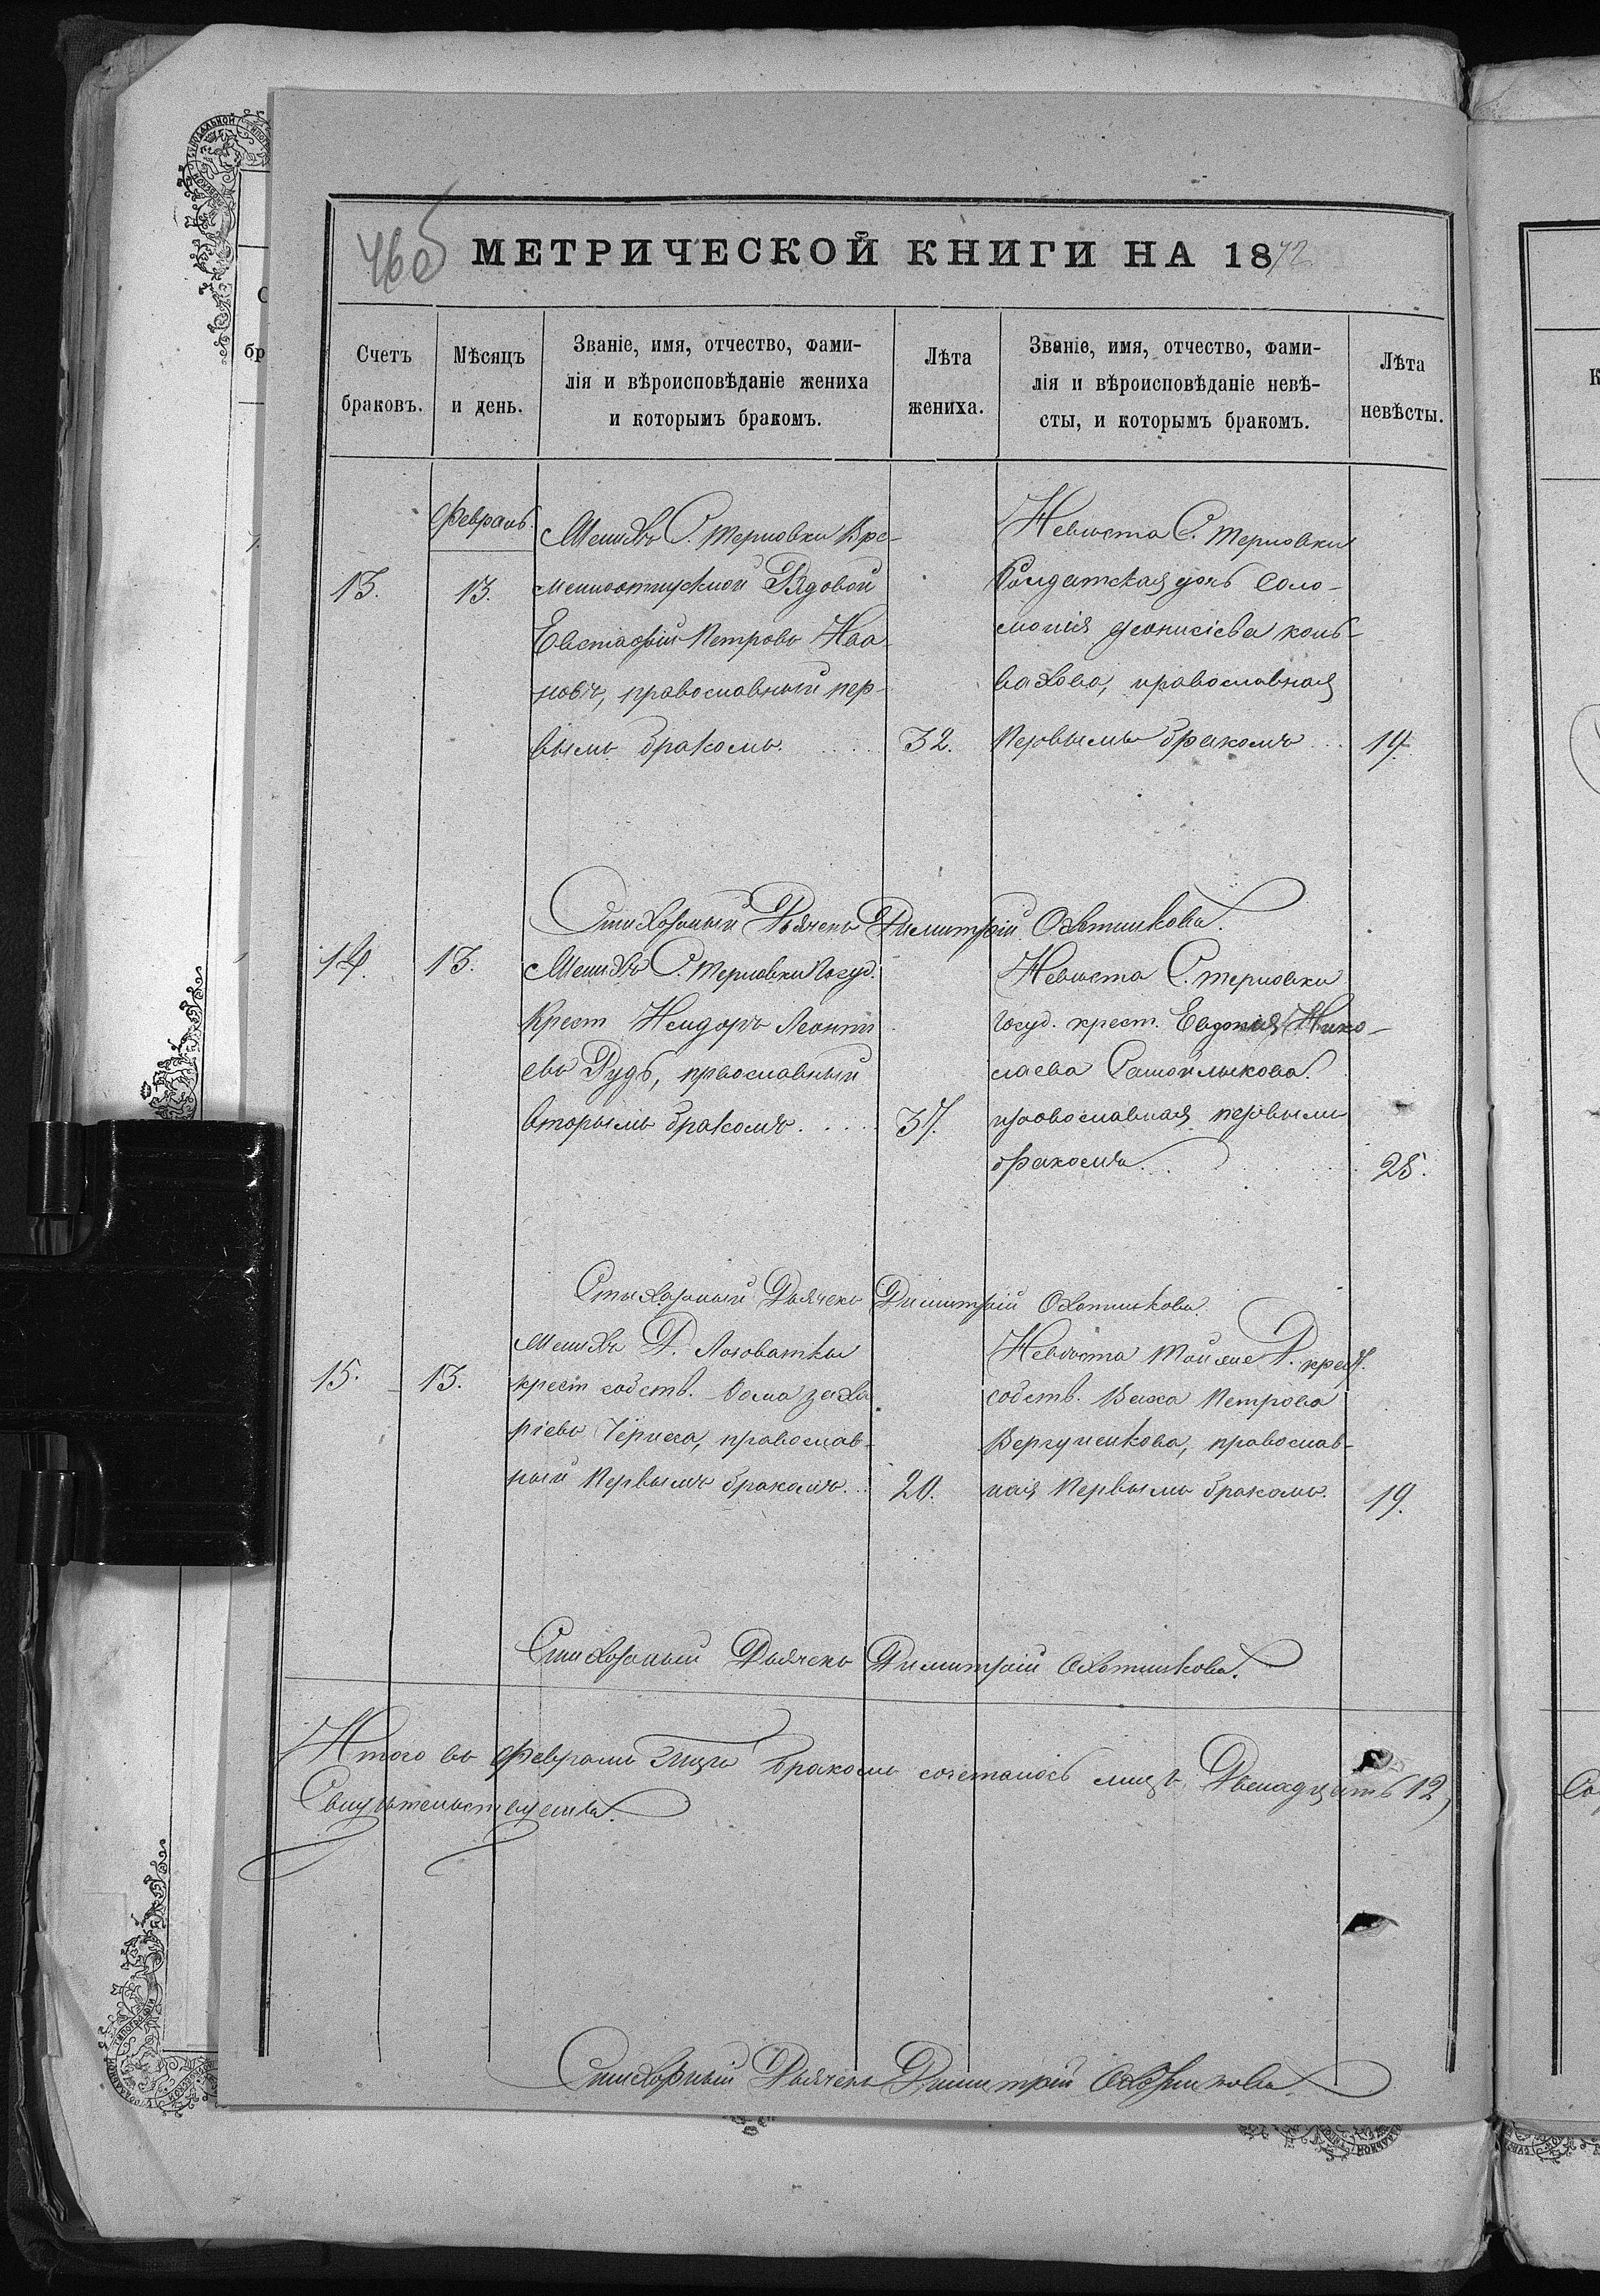 46об
МЕТРИЧЕСКОЙ КНИГИ НА 1872
Счетъ браковъ.
Мѣсяцъ и день.
Званіе, имя, отчество, фами-
лія и вѣроисповѣданіе жениха
и которымъ бракомъ.
Лѣта жениха.
Званіе, имя, отчество, фами-
лія и вѣроисповѣданіе невѣ-
сты, и которымъ бракомъ.
Лѣта невѣсты.
Февраль.
13.
13.
Женихъ С. Терновки Вре-
менноотпускной Рядовой
Евстафій Петровъ
православный пер-
вымъ бракомъ
32.
Невѣста С. Терновки
Солдатская дочь Соло-
монія Діонисіева
православная
первымъ бракомъ
19.
Стихарный Дьячекъ Димитрій Охотниковъ.
14.
13.
Женихъ С. Терновки Госуд.
Крест Исидоръ Леонти
евъ Рудь, православный
вторымъ бракомъ
37.
Невѣста С. Терновки
Госуд. крест. Евдокія Нико-
лаева
православная первымъ
бракомъ
25.
Стихарный Дьячекъ Димитрій Охотниковъ.
15.
13.
Женихъ Д. Лозоватки
крест собств. Фома Заха
ріевъ православ-
ный Первымъ бракомъ.
20.
Невѣста Той же Д. крест.
собств. Васса Петрова
Вергуненкова, православ-
ная Первымъ бракомъ.
19.
Стихарный Дьячекъ Димитрій Охотниковъ.
Итого въ Февралѣ Мцѣ бракомъ сочеталось лицъ Двенадцать 12,
Свидѣтельствуемъ.
Стихарный Дьячекъ Димитрій Охотниковъ.